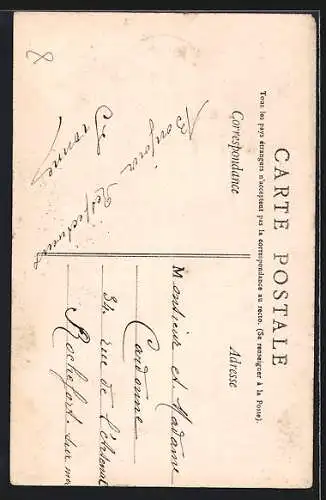 CARTE POSTALE
Tous les pays étrangers n'acceptent pas la correspondance au recto. (Se renseigner à la Poste).
Correspondance
Adresse
Bonjour
Respectueux
Yvonne
Monsieur et Madame
Cardonne
34 rue de l'Arsenal
Rochefort sur mer
8